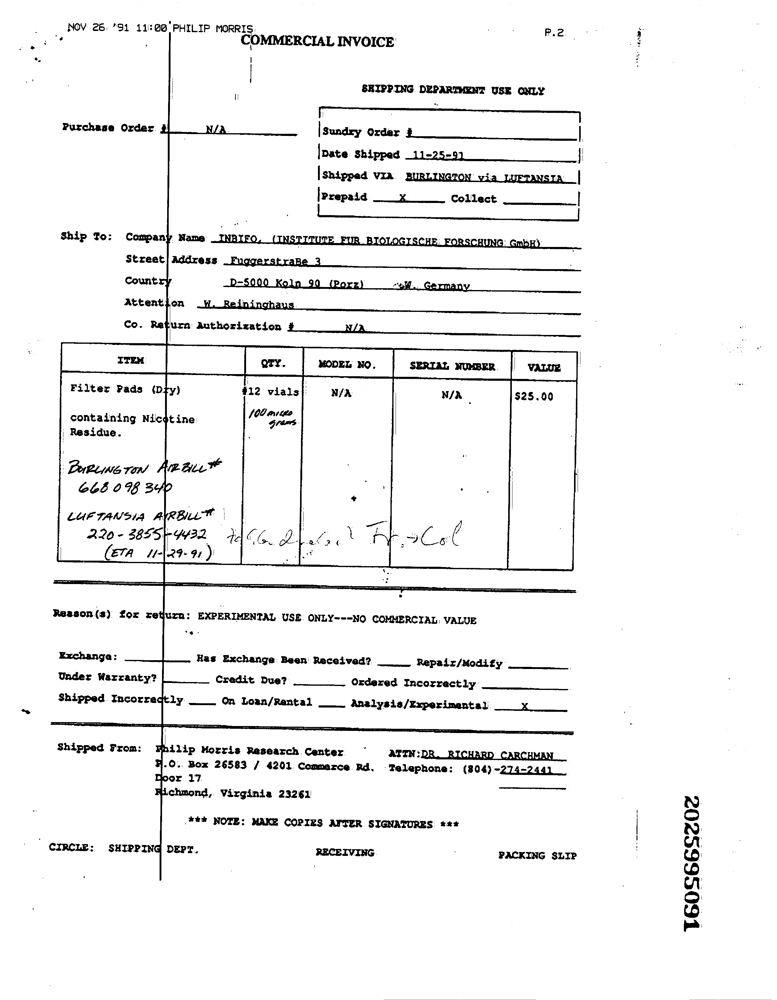 NOV 26 '91 11:00 PHILIP MORRIS P.2
COMMERCIAL INVOICE
SHIPPING DEPARTMENT USE ONLY
Purchase Order # N/A
Sundry Order #
Date Shipped 11-25-91
Shipped VIA BURLINGTON via LUFTANSIA
Prepaid X Collect
Ship To: Company Name INBIFO, (INSTITUTE FUR BIOLOGISCHE FORSCHUNG GmbH)
Street Address Fuggerstraße 3
Country D-5000 Koln 90 (Porz) W. Germany
Attention W. Reininghaus
Co. Return Authorization # N/A
ITEM QTY. MODEL NO. SERIAL NUMBER VALUE
Filter Pads (Dry) #12 vials N/A N/A $25.00
containing Nicotine 100 micro
Residue. grams
BURLINGTON AIRBILL #
668 098 340
LUFTANSIA AIRBILL #
220-3855-4432
(ETA 11-29-91)
Reason(s) for return: EXPERIMENTAL USE ONLY---NO COMMERCIAL VALUE
Exchange: Has Exchange Been Received? Repair/Modify
Under Warranty? Credit Due? Ordered Incorrectly
Shipped Incorrectly On Loan/Rental Analysis/Experimental X
Shipped From: Philip Morris Research Center ATTN: DR. RICHARD CARCHMAN
P.O. Box 26583 / 4201 Commerce Rd. Telephone: (804)-274-2441
Door 17
Richmond, Virginia 23261
*** NOTE: MAKE COPIES AFTER SIGNATURES ***
CIRCLE: SHIPPING DEPT. RECEIVING PACKING SLIP
2025995091